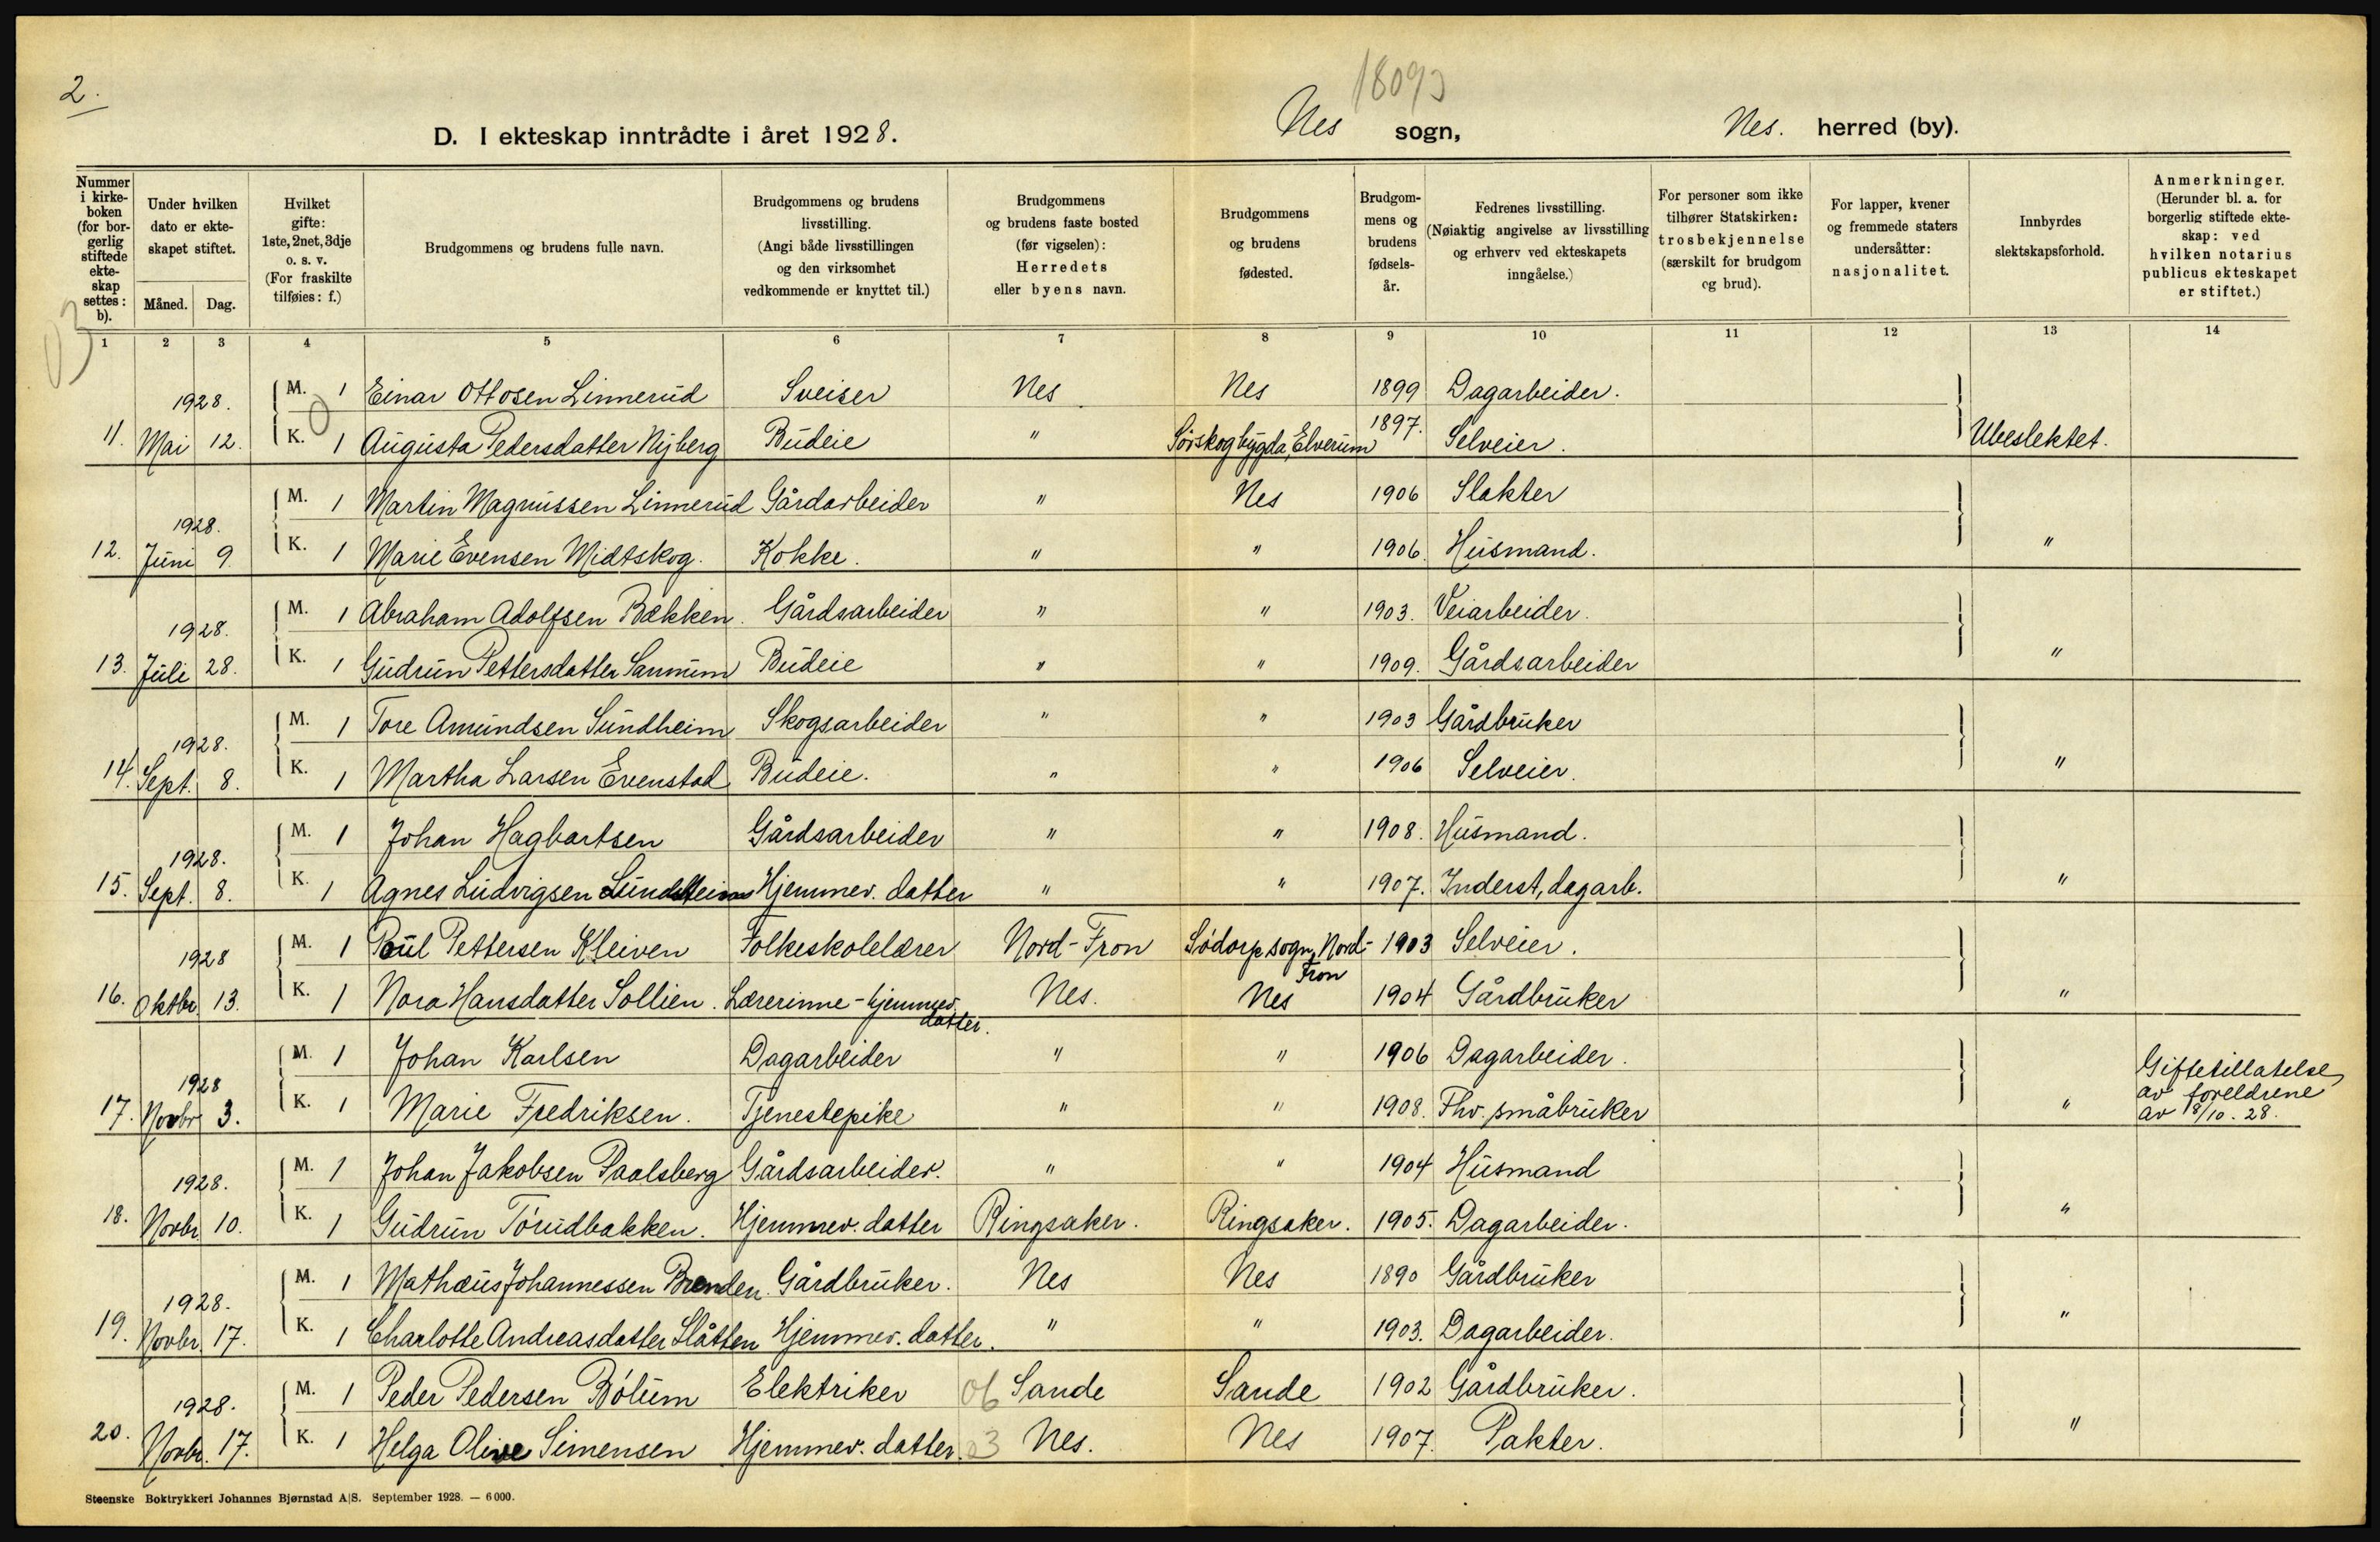 2.
18093
D. I ekteskap inntrådte i året 1928.
Nes sogn,
Nes. herred (by).
Nummer i kirke-boken (for bor-gerlig stiftede ekte-skap settes: b).
Under hvilken dato er ekte-skapet stiftet.
Måned. Dag.
Hvilket gifte: 1ste, 2net, 3dje o. s. v. (For fraskilte tilføies: f.)
Brudgommens og brudens fulle navn.
Brudgommens og brudens livsstilling. (Angi både livsstillingen og den virksomhet vedkommende er knyttet til.)
Brudgommens og brudens faste bosted (før vigselen): Herredets eller byens navn.
Brudgommens og brudens fødested.
Brudgom-mens og brudens fødsels-år.
Fedrenes livsstilling. (Nøiaktig angivelse av livsstilling og erhverv ved ekteskapets inngåelse.)
For personer som ikke tilhører Statskirken: trosbekjennelse (særskilt for brudgom og brud).
For lapper, kvener og fremmede staters undersåtter: nasjonalitet.
Innbyrdes slektskapsforhold.
Anmerkninger. (Herunder bl. a. for borgerlig stiftede ekte-skap: ved hvilken notarius publicus ekteskapet er stiftet.)
03
1 2 3 4 5 6 7 8 9 10 11 12 13 14
1928. M. 1 Einar Ottosen Linnerud Sveiser Nes Nes 1899 Dagarbeider.
11. Mai 12. K. 1 Augusta Pedersdatter Nyberg Budeie " Sørskogbygda, Elverum 1897. Selveier. Ubeslektet.
1928. M. 1 Martin Magnussen Linnerud Gårdarbeider " Nes 1906 Slakter
12. Juni 9. K. 1 Marie Evensen Midtskog. Kokke. " " 1906. Husmand. "
1928. M. 1 Abraham Adolfsen Bækken. Gårdsarbeider " " 1903. Veiarbeider.
13. Juli 28. K. 1 Gudrun Pettersdatter Sannum Budeie " " 1909. Gårdsarbeider "
1928. M. 1 Tore Amundsen Sundheim Skogsarbeider " " 1903 Gårdbruker
14. Sept. 8. K. 1 Martha Larsen Evenstad Budeie. " " 1906 Selveier. "
1928. M. 1 Johan Hagbartsen Gårdsarbeider " " 1908. Husmand.
15. Sept. 8. K. 1 Agnes Ludvigsen Sundheim Hjemmev. datter " " 1907. Inderst, dagarb. "
1928 M. 1 Poul Pettersen Kleiven Folkeskolelærer Nord-Fron Sødorp sogn, Nord-Fron 1903 Selveier.
16. Oktbr. 13. K. 1 Nora Hansdatter Sollien. Lærerinne - hjemmev. datter. Nes. Nes 1904 Gårdbruker "
1928 M. 1 Johan Karlsen Dagarbeider " " 1906 Dagarbeider.
17. Novbr. 3. K. 1 Marie Fredriksen. Tjenestepike " " 1908. Fhv. småbruker "
Giftetillatelse
av foreldrene
av 18/10. 28.
1928. M. 1 Johan Jakobsen Paalsberg Gårdsarbeider. " " 1904 Husmand
18. Novbr. 10. K. 1 Gudrun Torudbakken. Hjemmev. datter Ringsaker. Ringsaker. 1905. Dagarbeider. "
1928. M. 1 Mathæus Johannessen Brenden. Gårdbruker. Nes Nes 1890 Gårdbruker
19. Novbr. 17. K. 1 Charlotte Andreasdatter Slåtten Hjemmev. datter. " " 1903. Dagarbeider. "
1928. M. 1 Peder Pedersen Bølum Elektriker 06 Sande Sande 1902 Gårdbruker.
20. Novbr. 17. K. 1 Helga Olive Simensen Hjemmev. datter. 03 Nes. Nes 1907. Pakter. "
Steenske Boktrykkeri Johannes Bjørnstad A|S. September 1928. — 6000.